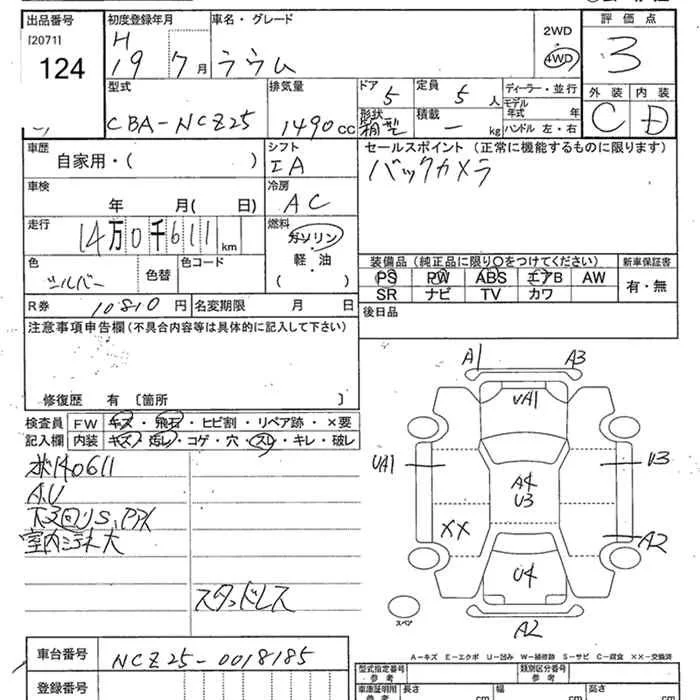 出品番号
[2071]
124
初度登録年月
H
19 7月
車名・グレード
ラウム
2WD
4WD
評価点
3
外装 内装
C D
型式
CBA-NCZ25
排気量
1490cc
ドア
5
形状
箱型
定員
5人
積載
― kg
ディーラー・並行
モデル年式 年
ハンドル 左・右
車歴
自家用・( )
シフト
IA
セールスポイント(正常に機能するものに限ります)
バックカメラ
車検
年 月( 日)
冷房
AC
走行
14万0千611km
燃料
ガソリン
軽・油
( )
色
シルバー
色替
色コード
装備品(純正品に限り○をつけてください)
PS PW ABS エアB AW
SR ナビ TV カワ
新車保証書
有・無
R券
10810円
名変期限 月 日
後日品
注意事項申告欄(不具合内容等は具体的に記入して下さい)
修復歴 有 〔箇所 〕
検査員記入欄
FW キズ・飛石・ヒビ割・リペア跡・×要
内装 キズ・汚レ・コゲ・穴・スレ・キレ・破レ
メ140611
A.U
下回りS、P人
室内ヨゴレ大
スタッドレス
A1 A3
UA1
UA1 U3
A4
U3
XX A2
U4
A2
スペア
A-キズ E-エクボ U-凹み W-補修跡 S-サビ C-腐食 XX-交換済
車台番号
NCZ25-0018185
登録番号
型式指定番号
参考
類別区分番号
参考
車庫証明用
参考
長さ cm
幅 cm
高さ cm